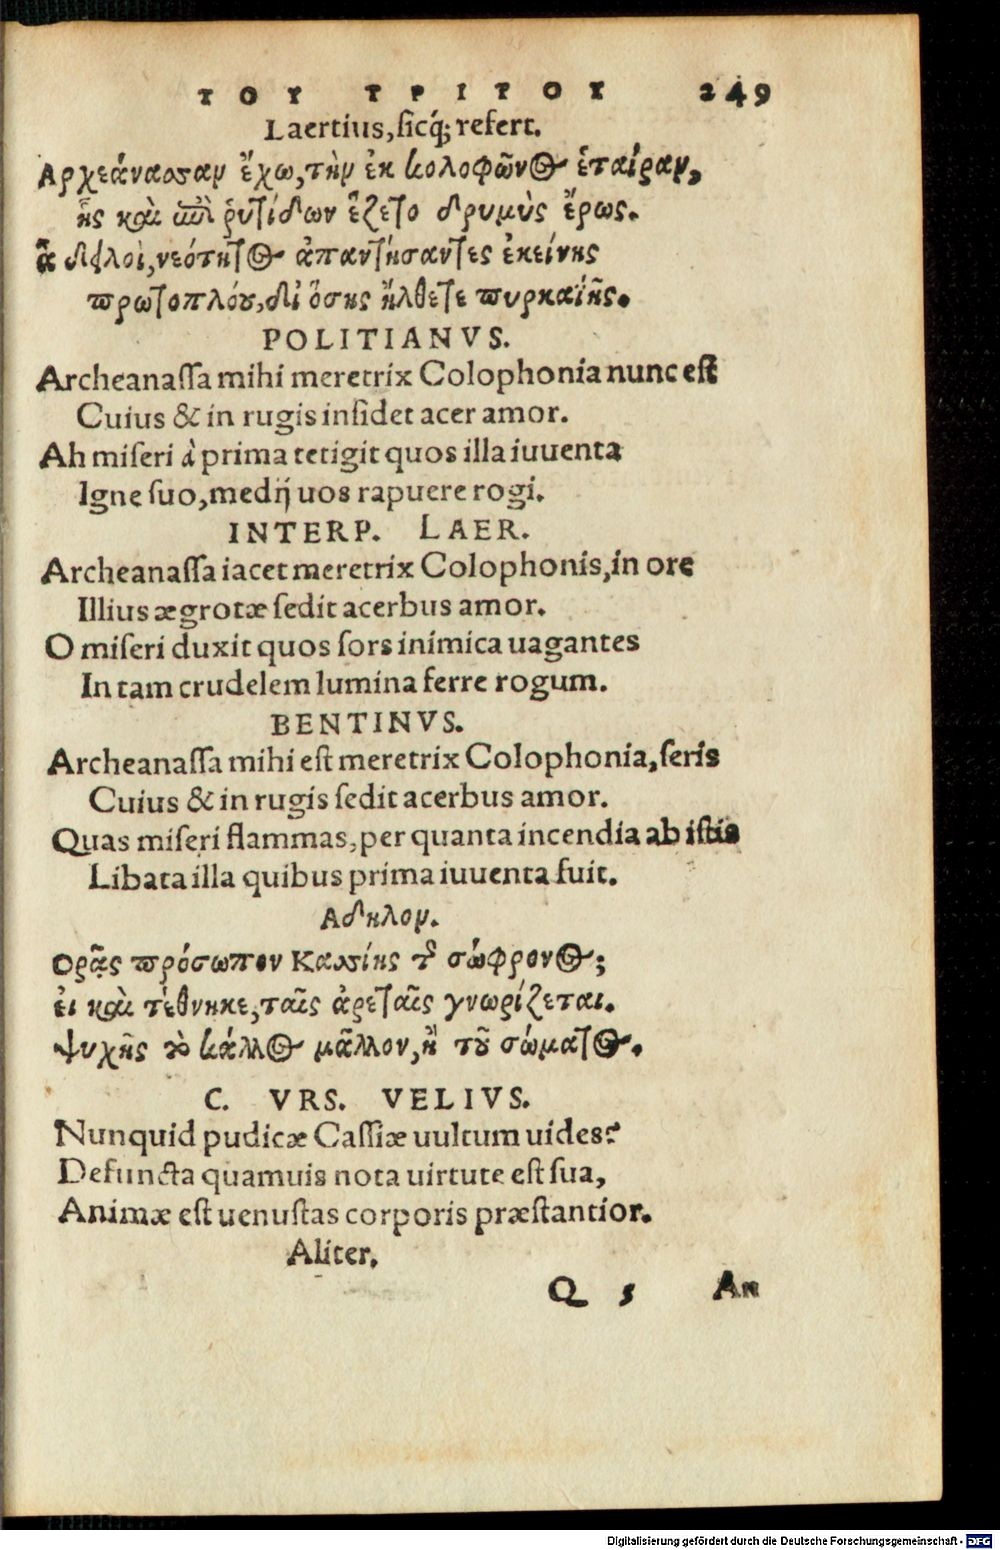 ΤΟΥ ΤΡΙΤΟΥ 249
Laertius, sicq; refert.
Αρχεάνασσαν ἔχω, τὴν ἐκ κολοφῶνος ἑταίραν,
ἧς καὶ ἐπὶ ῥυτίδων ἕζετο δριμὺς ἔρως.
ἆ δειλοὶ, νεότητος ἀπαντήσαντες ἐκείνης
πρωτοπλόου, δι' ὅσης ἤλθετε πυρκαϊῆς.
POLITIANVS.
Archeanaſſa mihi meretrix Colophonia nunc eſt
Cuius & in rugis inſidet acer amor.
Ah miſeri à prima tetigit quos illa iuuenta
Igne ſuo, medij uos rapuere rogi.
INTERP. LAER.
Archeanaſſa iacet meretrix Colophonis, in ore
Illius ægrotæ ſedit acerbus amor.
O miſeri duxit quos ſors inimica uagantes
In tam crudelem lumina ferre rogum.
BENTINVS.
Archeanaſſa mihi eſt meretrix Colophonia, ſeris
Cuius & in rugis ſedit acerbus amor.
Quas miſeri flammas, per quanta incendia ab iſtis
Libata illa quibus prima iuuenta fuit.
Αδηλον.
Ορᾷς πρόσωπον Κασσίης τῆς σώφρονος;
εἰ καὶ τέθνηκε, ταῖς ἀρεταῖς γνωρίζεται.
ψυχῆς τὸ κάλλος μᾶλλον, ἢ τοῦ σώματος.
C. VRS. VELIVS.
Nunquid pudicæ Caſſiæ uultum uides?
Defuncta quamuis nota uirtute eſt ſua,
Animæ eſt uenuſtas corporis præſtantior.
Aliter.
Q 5 An
Digitalisierung gefördert durch die Deutsche Forschungsgemeinschaft - DFG